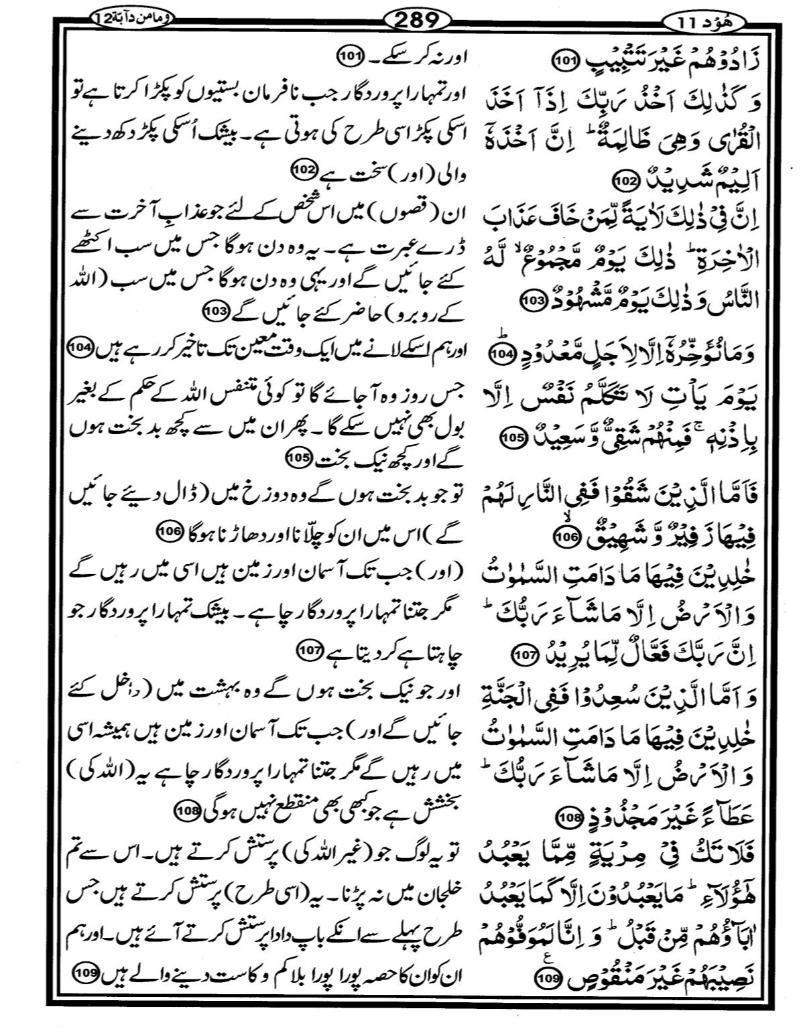 ھُوْد 11
289
وما من دآبة 12
زَادُوْهُمْ غَيْرَ تَتْبِيْبٍ 101
وَ كَذٰلِكَ اَخْذُ رَبِّكَ اِذَاۤ اَخَذَ
الْقُرٰى وَهِىَ ظَالِمَةٌ ؕ اِنَّ اَخْذَهٗۤ
اَلِيْمٌ شَدِيْدٌ 102
اِنَّ فِىْ ذٰلِكَ لَاٰيَةً لِّمَنْ خَافَ عَذَابَ
الْاٰخِرَةِ ؕ ذٰلِكَ يَوْمٌ مَّجْمُوْعٌ ۙ لَّهُ
النَّاسُ وَ ذٰلِكَ يَوْمٌ مَّشْهُوْدٌ 103
وَمَا نُؤَخِّرُهٗۤ اِلَّا لِاَجَلٍ مَّعْدُوْدٍ ؕ 104
يَوْمَ يَاْتِ لَا تَكَلَّمُ نَفْسٌ اِلَّا
بِاِذْنِهٖ ۚ فَمِنْهُمْ شَقِىٌّ وَّ سَعِيْدٌ 105
فَاَمَّا الَّذِيْنَ شَقُوْا فَفِى النَّارِ لَهُمْ
فِيْهَا زَفِيْرٌ وَّ شَهِيْقٌ ۙ 106
خٰلِدِيْنَ فِيْهَا مَا دَامَتِ السَّمٰوٰتُ
وَالْاَرْضُ اِلَّا مَا شَآءَ رَبُّكَ ؕ
اِنَّ رَبَّكَ فَعَّالٌ لِّمَا يُرِيْدُ 107
وَ اَمَّا الَّذِيْنَ سُعِدُوْا فَفِى الْجَنَّةِ
خٰلِدِيْنَ فِيْهَا مَا دَامَتِ السَّمٰوٰتُ
وَ الْاَرْضُ اِلَّا مَا شَآءَ رَبُّكَ ؕ
عَطَآءً غَيْرَ مَجْذُوْذٍ 108
فَلَا تَكُ فِىْ مِرْيَةٍ مِّمَّا يَعْبُدُ
هٰٓؤُلَآءِ ؕ مَا يَعْبُدُوْنَ اِلَّا كَمَا يَعْبُدُ
اٰبَآؤُهُمْ مِّنْ قَبْلُ ؕ وَ اِنَّا لَمُوَفُّوْهُمْ
نَصِيْبَهُمْ غَيْرَ مَنْقُوْصٍ ع 109
اور نہ کر سکے۔ 101
اور تمہارا پروردگار جب نافرمان بستیوں کو پکڑا کرتا ہے تو
اسکی پکڑ اسی طرح کی ہوتی ہے۔ بیشک اُسکی پکڑ دکھ دینے
والی (اور) سخت ہے 102
ان (قصوں) میں اس شخص کے لئے جو عذابِ آخرت سے
ڈرے عبرت ہے۔ یہ وہ دن ہوگا جس میں سب اکٹھے
کئے جائیں گے اور یہی وہ دن ہوگا جس میں سب (اللہ
کے روبرو) حاضر کئے جائیں گے 103
اور ہم اسکے لانے میں ایک وقت معین تک تاخیر کر رہے ہیں 104
جس روز وہ آجائے گا تو کوئی متنفس اللہ کے حکم کے بغیر
بول بھی نہیں سکے گا۔ پھر ان میں سے کچھ بد بخت ہوں
گے اور کچھ نیک بخت 105
تو جو بد بخت ہوں گے وہ دوزخ میں (ڈال دیئے جائیں
گے) اس میں ان کو چلّانا اور دھاڑنا ہوگا 106
(اور) جب تک آسمان اور زمین ہیں اسی میں رہیں گے
مگر جتنا تمہارا پروردگار چاہے۔ بیشک تمہارا پروردگار جو
چاہتا ہے کر دیتا ہے 107
اور جو نیک بخت ہوں گے وہ بہشت میں (داخل کئے
جائیں گے اور) جب تک آسمان اور زمین ہیں ہمیشہ اسی
میں رہیں گے مگر جتنا تمہارا پروردگار چاہے یہ (اللہ کی)
بخشش ہے جو کبھی بھی منقطع نہیں ہوگی 108
تو یہ لوگ جو (غیر اللہ کی) پرستش کرتے ہیں۔ اس سے تم
خلجان میں نہ پڑنا۔ یہ (اسی طرح) پرستش کرتے ہیں جس
طرح پہلے سے انکے باپ دادا پرستش کرتے آئے ہیں۔ اور ہم
ان کو ان کا حصہ پورا پورا بلا کم و کاست دینے والے ہیں 109